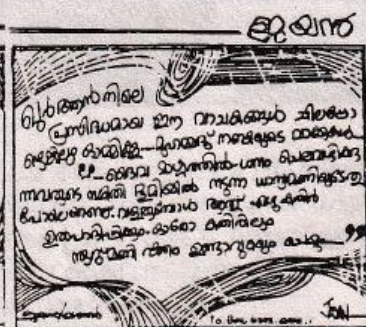 ജയൻ
ഖുർആൻനിലെ
പ്രസിദ്ധമായ ഈ വാചകങ്ങൾ ചിലപ്പോ
മുഹമ്മദ് നബിയുടെ വാക്കുകൾ
ദൈവ മാർഗ്ഗത്തിൽ ധനം ചെലവഴിക്കു
ന്നവരുടെ സ്ഥിതി ഭൂമിയിൽ നടുന്ന ധാന്യമണിയുടെതു
പോലെയാണ്. വളരുമ്പോൾ അത് ഏഴു കതിർ
ഉത്പാദിപ്പിക്കും. ഓരോ കതിരിലും
നൂറുമണി വീതം ഉണ്ടാവുകയും ചെയ്യും